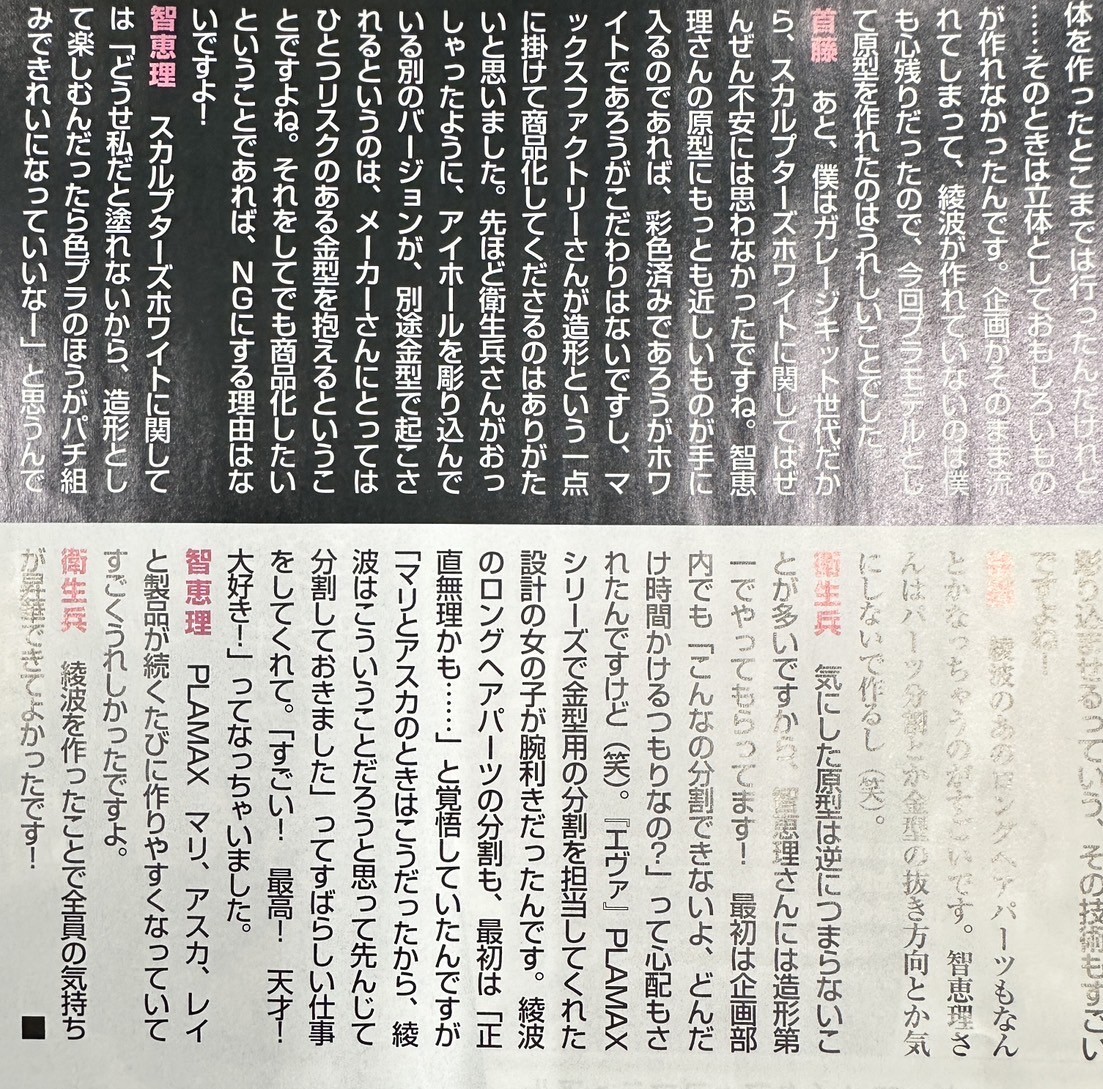 体を作ったとこまでは行ったんだけれど
……そのときは立体としておもしろいもの
が作れなかったんです。企画がそのまま流
れてしまって、綾波が作れていないのは僕
も心残りだったので、今回プラモデルとし
て原型を作れたのはうれしいことでした
首藤 あと、僕はガレージキット世代だか
ら、スカルプターズホワイトに関してはぜ
んぜん不安には思わなかったですね。智恵
理さんの原型にもっとも近しいものが手に
入るのであれば、彩色済みであろうがホワ
イトであろうがこだわりはないですし、マ
ックスファクトリーさんが造形という一点
に掛けて商品化してくださるのはありがた
いと思いました。先ほど衛生兵さんがおっ
しゃったように、アイホールを彫り込んで
いる別のバージョンが、別途金型で起こさ
れるというのは、メーカーさんにとっては
ひとつリスクのある金型を抱えるというこ
とですよね。それをしてでも商品化したい
ということであれば、NGにする理由はな
いですよ！
智恵理 スカルプターズホワイトに関して
は「どうせ私だと塗れないから、造形とし
て楽しむんだったら色プラのほうがパチ組
みできれいになっていいな—」と思うんで
彫り込ませるっていう、その技術もすごい
ですよね！
綾波のあのロングヘアパーツもなん
とかなっちゃうのがすごいです。智恵理さ
んはパーツ分割とか金型の抜き方向とか気
にしないで作るし（笑）。
衛生兵 気にした原型は逆につまらないこ
とが多いですから、智恵理さんには造形第
一でやってもらってます！ 最初は企画部
内でも「こんなの分割できないよ、どんだ
け時間かけるつもりなの？」って心配もさ
れたんですけど（笑）。『エヴァ』PLAMAX
シリーズで金型用の分割を担当してくれた
設計の女の子が腕利きだったんです。綾波
のロングヘアパーツの分割も、最初は「正
直無理かも……」と覚悟していたんですが
「マリとアスカのときはこうだったから、綾
波はこういうことだろうと思って先んじて
分割しておきました」ってすばらしい仕事
をしてくれて。「すごい！ 最高！ 天才！
大好き！」ってなっちゃいました。
智恵理 PLAMAX マリ、アスカ、レイ
と製品が続くたびに作りやすくなっていて
すごくうれしかったですよ。
衛生兵 綾波を作ったことで全員の気持ち
が昇華できてよかったです！ ■